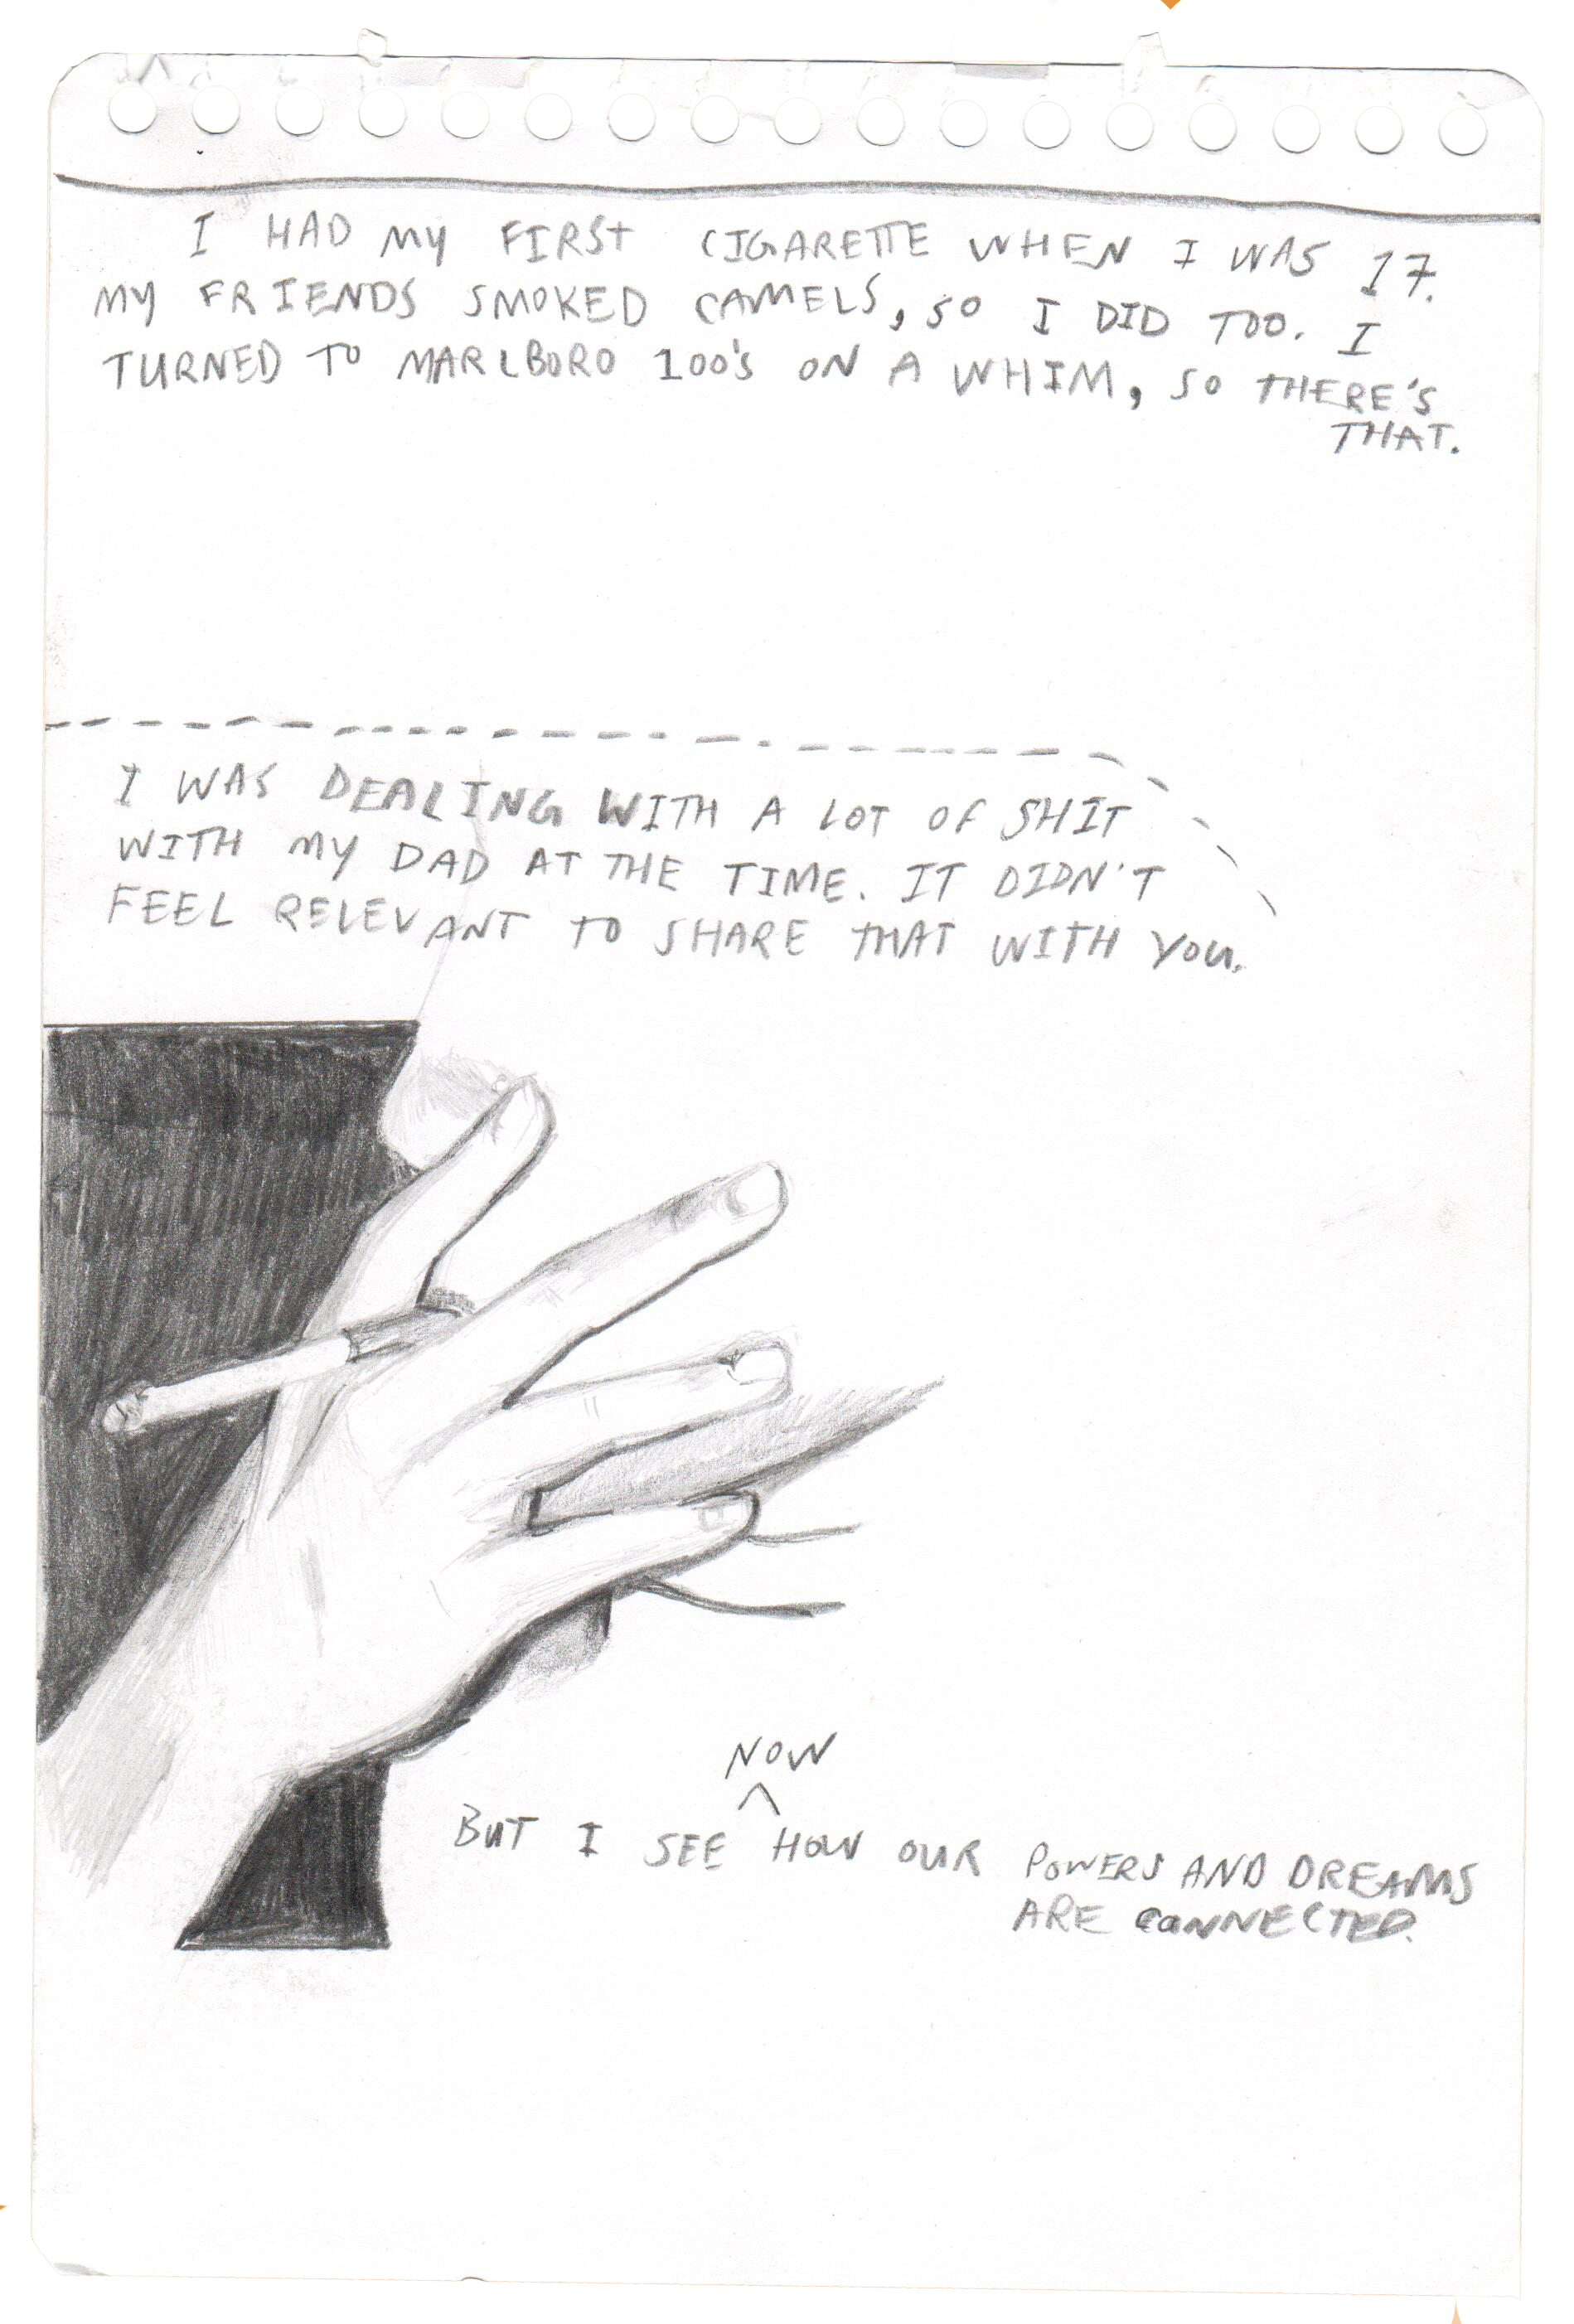 I HAD MY FIRST CIGARETTE WHEN I WAS 17.
MY FRIENDS SMOKED CAMELS, SO I DID TOO. I
TURNED TO MARLBORO 100's ON A WHIM, SO THERE'S
THAT.
I WAS DEALING WITH A LOT OF SHIT
WITH MY DAD AT THE TIME. IT DIDN'T
FEEL RELEVANT TO SHARE THAT WITH YOU.
NOW
BUT I SEE ^ HOW OUR POWERS AND DREAMS
ARE CONNECTED.